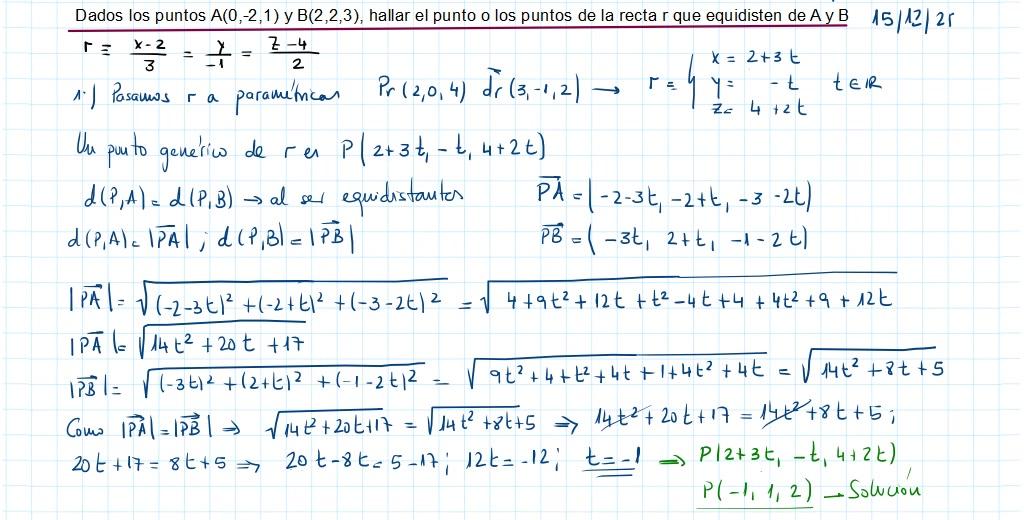 Dados los puntos A(0,-2,1) y B(2,2,3), hallar el punto o los puntos de la recta r que equidisten de A y B 15/12/25
r ≡ (x-2)/3 = y/-1 = (z-4)/2
1·) Pasamos r a paramétricas Pr(2,0,4) d⃗r(3,-1,2) → r ≡ { x = 2+3t
y = -t t∈ℝ
z = 4+2t
Un punto genérico de r es P(2+3t, -t, 4+2t)
d(P,A) = d(P,B) → al ser equidistantes PA⃗ = (-2-3t, -2+t, -3-2t)
d(P,A) = |PA⃗| ; d(P,B) = |PB⃗| PB⃗ = (-3t, 2+t, -1-2t)
|PA⃗| = √((-2-3t)² + (-2+t)² + (-3-2t)²) = √(4+9t²+12t+t²-4t+4+4t²+9+12t)
|PA⃗| = √(14t²+20t+17)
|PB⃗| = √((-3t)²+(2+t)²+(-1-2t)²) = √(9t²+4+t²+4t+1+4t²+4t) = √(14t²+8t+5)
Como |PA⃗| = |PB⃗| ⇒ √(14t²+20t+17) = √(14t²+8t+5) ⇒ 14t²+20t+17 = 14t²+8t+5 ;
20t+17 = 8t+5 ⇒ 20t-8t = 5-17 ; 12t = -12 ; t = -1 ⇒ P(2+3t, -t, 4+2t)
P(-1, 1, 2) → Solución